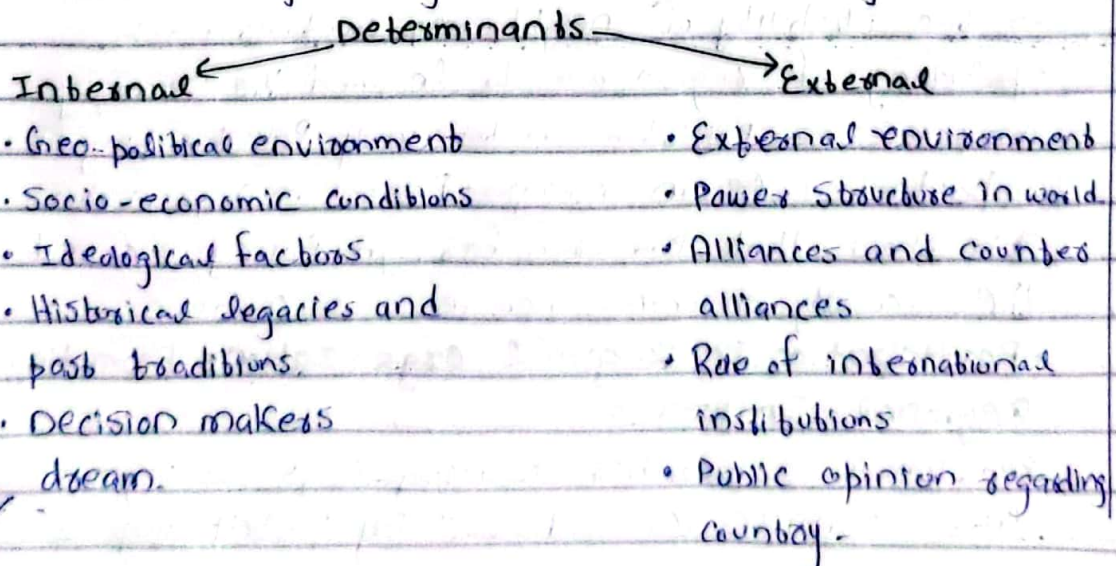 Determinants
Internal
External
• Geo-political environment
• Socio-economic conditions
• Ideological factors
• Historical legacies and
past traditions.
• Decision makers
dream.
• External environment
• Power structure in world
• Alliances and counter
alliances
• Role of international
institutions
• Public opinion regarding
country.